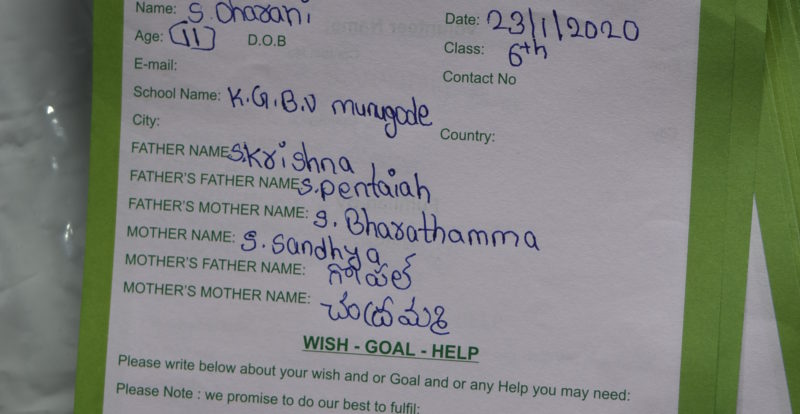 Name: S. Dharani Date: 23/1/2020
Age: (11) D.O.B Class: 6th
E-mail: Contact No
School Name: K.G.B.V murugode
City: Country:
FATHER NAME S.Krishna
FATHER'S FATHER NAME: S.pentaiah
FATHER'S MOTHER NAME: S. Bharathamma
MOTHER NAME: S. Sandhya
MOTHER'S FATHER NAME: గోపాల్
MOTHER'S MOTHER NAME: చంద్రమ్మ
WISH - GOAL - HELP
Please write below about your wish and or Goal and or any Help you may need:
Please Note : we promise to do our best to fulfil: